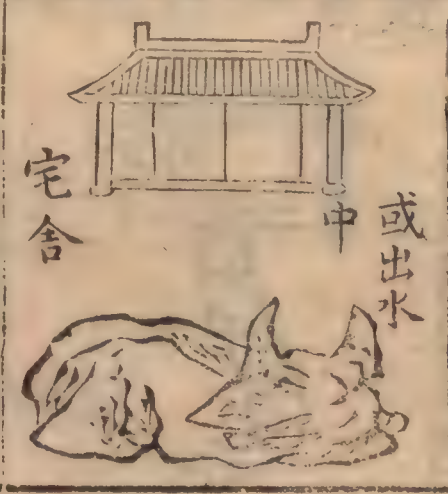 或出水
中
宅舍